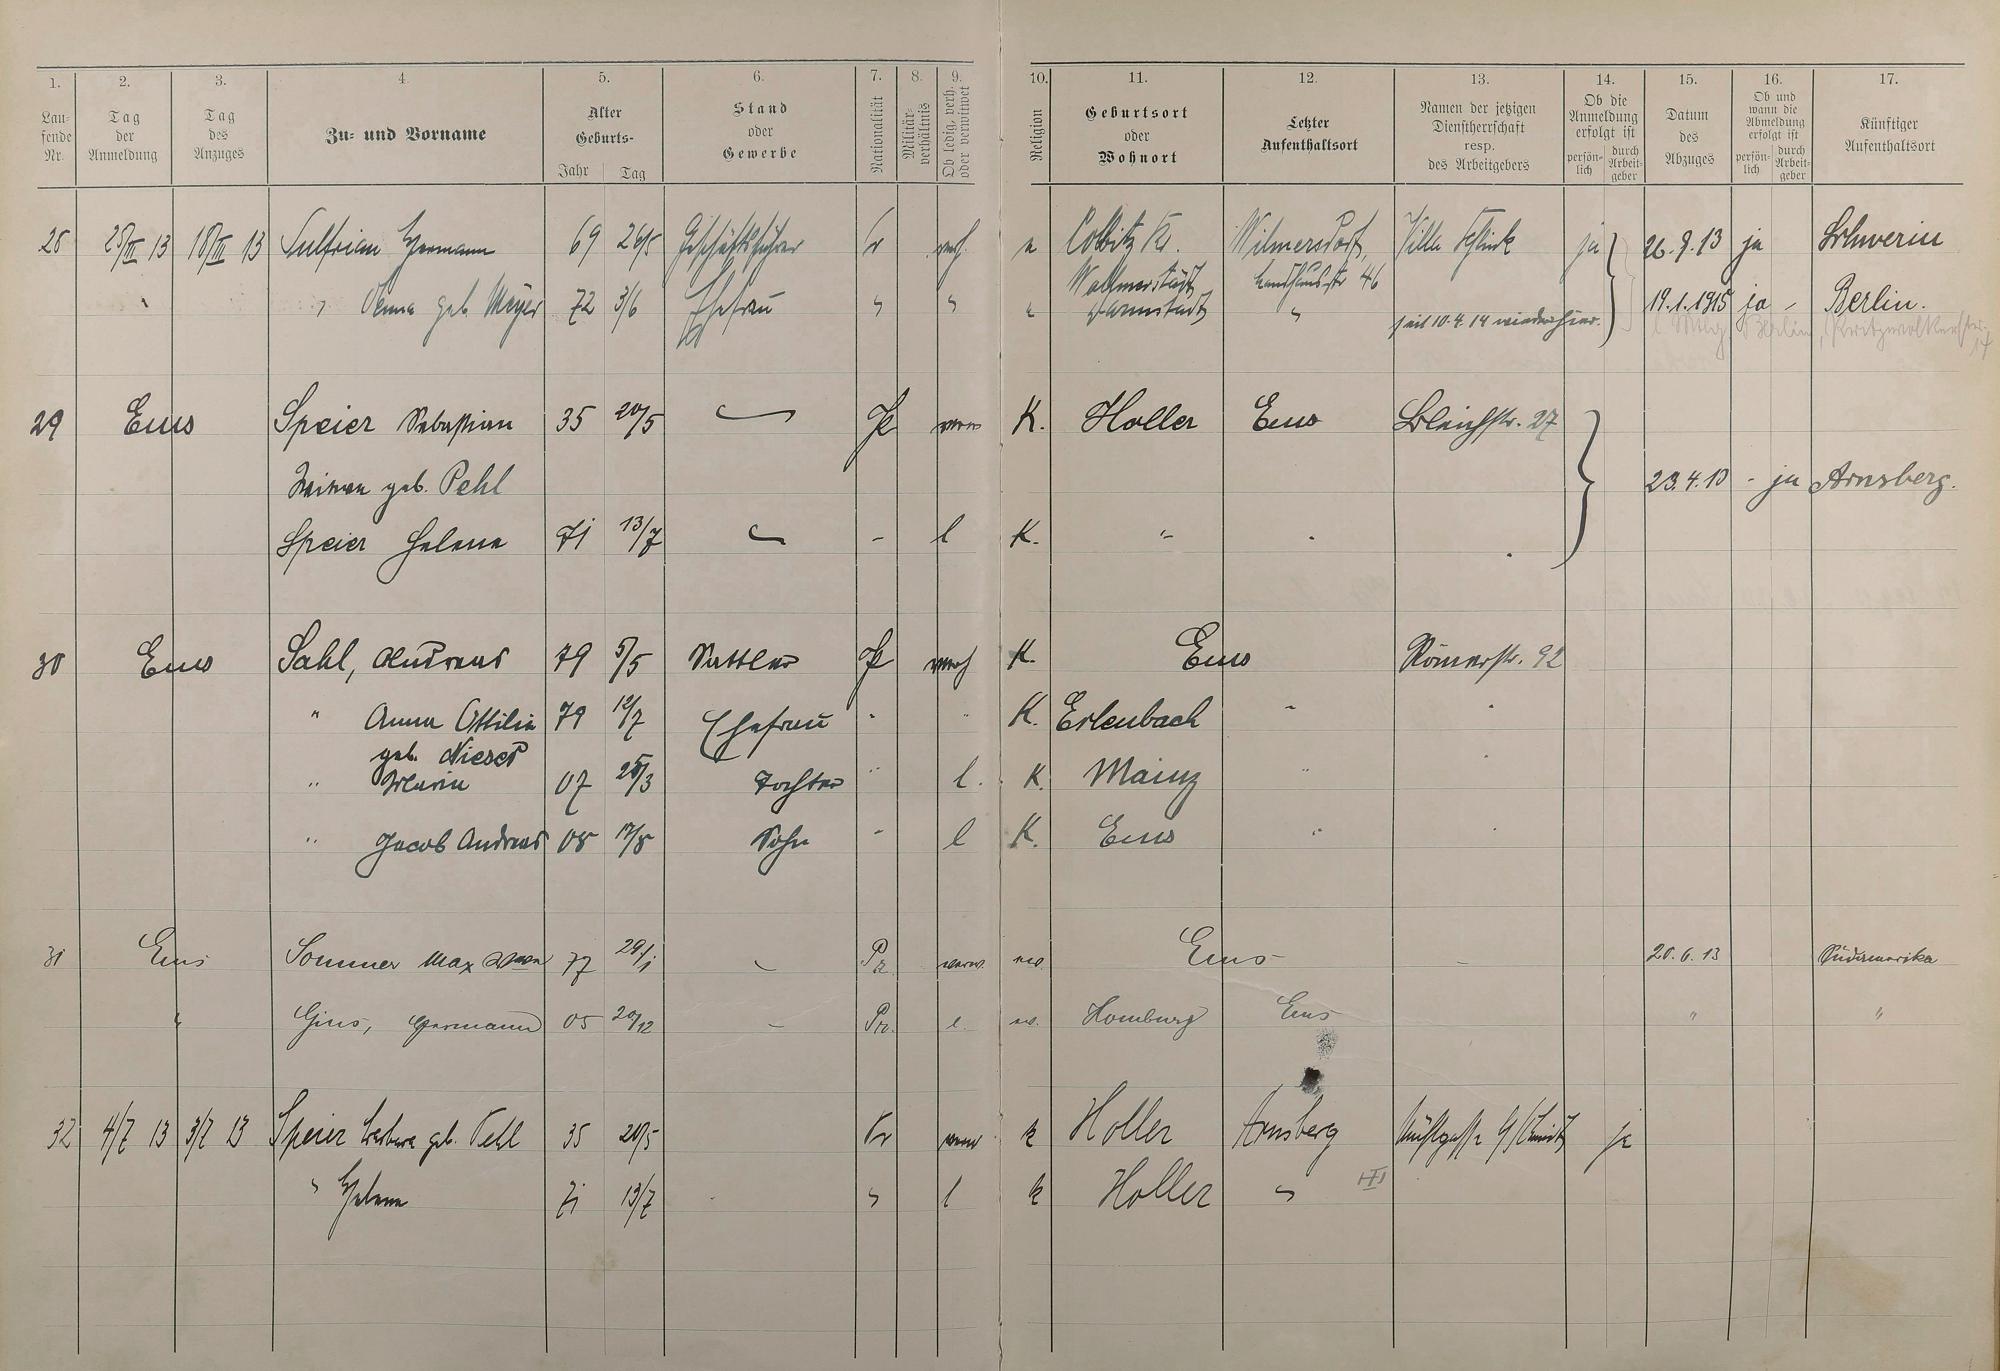 1. 2. 3. 4. 5. 6. 7. 8. 9. 10. 11. 12. 13. 14. 15. 16. 17.
Lau-
fende
Nr.
Tag
der
Anmeldung
Tag
des
Anzuges
Zu- und Vorname
Alter
Geburts-
Jahr Tag
Stand
oder
Gewerbe
Nationalität
Militär-
verhältnis
Ob ledig, verh.
oder verwitwet
Religion
Geburtsort
oder
Wohnort
Letzter
Aufenthaltsort
Namen der jetzigen
Dienstherrschaft
resp.
des Arbeitgebers
Ob die
Anmeldung
erfolgt ist
persön-
lich
durch
Arbeit-
geber
Datum
des
Abzuges
Ob und
wann die
Abmeldung
erfolgt ist
persön-
lich
durch
Arbeit-
geber
Künftiger
Aufenthaltsort
28 25/III 13 18/III 13 Hermann 69 26/5 Geschäftsführer Pr verh. Colbitz Kr. Wilmersdorf, Villa ja 26.9.13 ja Schwerin
Wolmirstädt Landhausstr 46
" geb. Meyer 72 3/6 Ehefrau " " " Darmstadt " seit 10.4.14 wieder hier. 19.1.1915 ja - Berlin.
29 Ems Speier Sebastian 35 20/5 K. Holler Ems Bleichstr. 27
Witwe geb. Pehl 23.4.13 - ja Arnsberg.
Speier Helena 71 13/7 - l K. "
30 Ems Sahl, Andreas 79 5/5 Sattler verh K. Ems Römerstr. 92
" Anna Ottilia 79 12/7 Ehefrau " " K. Erlenbach "
geb. Nieser
" Maria 07 25/3 Tochter " l. K. Mainz "
" Jacob Andreas 08 17/8 Sohn " l K. Ems "
31 Ems Sommer Max 77 29/1 Pr Ems - 20.6.13 Südamerika
" Hermann 05 20/12 - Pr. l. Homburg Ems " "
32 4/7 13 3/7 13 Speier Barbara geb. Pehl 35 20/5 Pr verw k Holler Arnsberg ja
" Helena 71 13/7 " l k Holler "